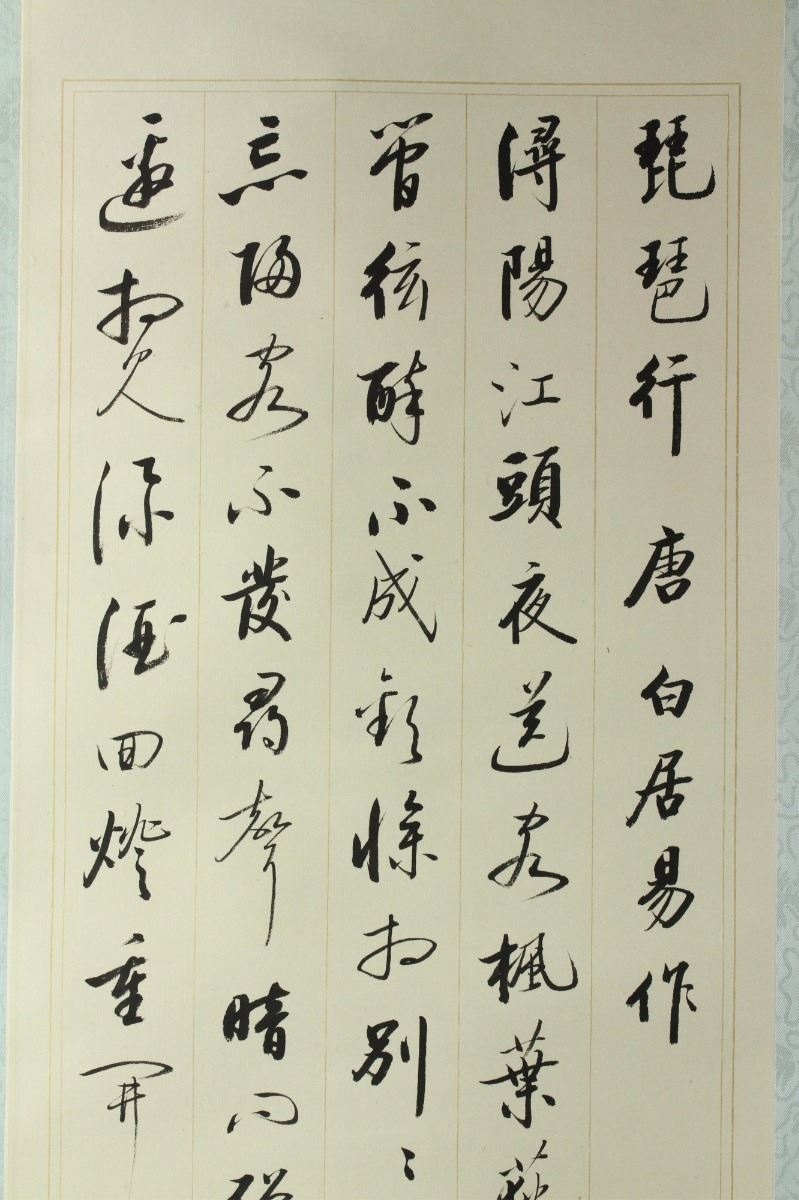 琵琶行 唐 白居易作
潯陽江頭夜送客楓葉荻
管絃醉不成歡慘相別〻
忘歸客不發尋聲暗問彈
邀相見添酒回燈重開